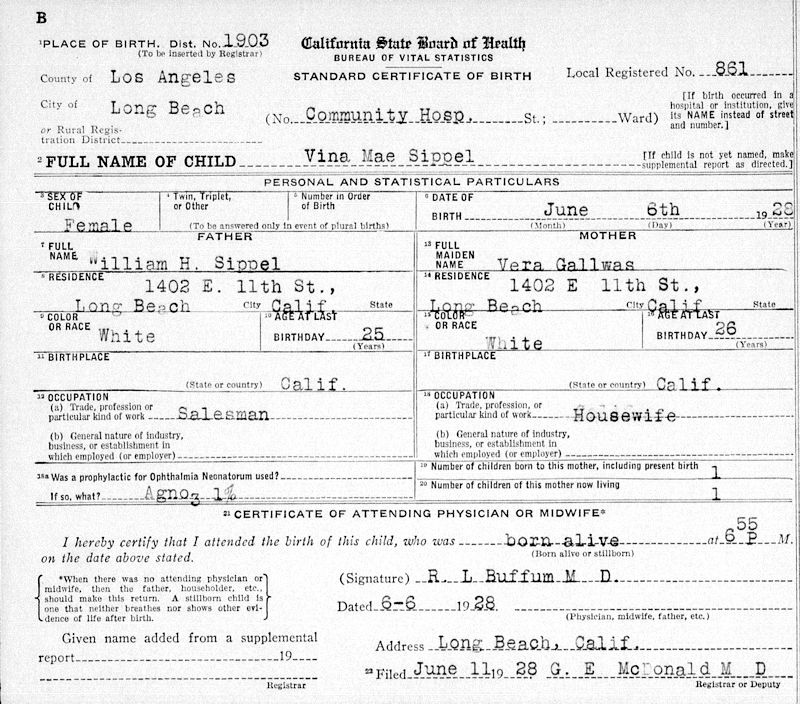 B
¹PLACE OF BIRTH. Dist. No. 1903
(To be inserted by Registrar)
California State Board of Health
BUREAU OF VITAL STATISTICS
STANDARD CERTIFICATE OF BIRTH
Local Registered No. 861
County of Los Angeles
City of Long Beach
or Rural Regis-
tration District
(No. Community Hosp. St.; Ward)
[If birth occurred in a
hospital or institution, give
its NAME instead of street
and number.]
² FULL NAME OF CHILD Vina Mae Sippel
[If child is not yet named, make
supplemental report as directed.]
PERSONAL AND STATISTICAL PARTICULARS
³ SEX OF
CHILD
Female
⁴ Twin, Triplet,
or Other
⁵ Number in Order
of Birth
(To be answered only in event of plural births)
⁶ DATE OF
BIRTH June 6th 1928
(Month) (Day) (Year)
FATHER
⁷ FULL
NAME William H. Sippel
⁸ RESIDENCE 1402 E. 11th St.,
Long Beach City Calif State
⁹ COLOR
OR RACE White
¹⁰ AGE AT LAST
BIRTHDAY 25
(Years)
¹¹ BIRTHPLACE
(State or country) Calif.
¹² OCCUPATION
(a) Trade, profession or
particular kind of work Salesman
(b) General nature of industry,
business, or establishment in
which employed (or employer)
MOTHER
¹³ FULL
MAIDEN
NAME Vera Gallwas
¹⁴ RESIDENCE 1402 E 11th St.,
Long Beach City Calif State
¹⁵ COLOR
OR RACE White
¹⁶ AGE AT LAST
BIRTHDAY 26
(Years)
¹⁷ BIRTHPLACE
(State or country) Calif.
¹⁸ OCCUPATION
(a) Trade, profession or
particular kind of work Housewife
(b) General nature of industry,
business, or establishment in
which employed (or employer)
¹⁸ᵃ Was a prophylactic for Ophthalmia Neonatorum used?
If so, what? Agno3 1%
¹⁹ Number of children born to this mother, including present birth 1
²⁰ Number of children of this mother now living 1
²¹ CERTIFICATE OF ATTENDING PHYSICIAN OR MIDWIFE*
I hereby certify that I attended the birth of this child, who was born alive at 6 55 P M.
(Born alive or stillborn)
on the date above stated.
*When there was no attending physician or
midwife, then the father, householder, etc.,
should make this return. A stillborn child is
one that neither breathes nor shows other evi-
dence of life after birth.
(Signature) R. L Buffum M D.
Dated 6-6 1928.
(Physician, midwife, father, etc.)
Given name added from a supplemental
report 19
Registrar
Address Long Beach, Calif.
²² Filed June 11 19 28 G. E McDonald M D
Registrar or Deputy